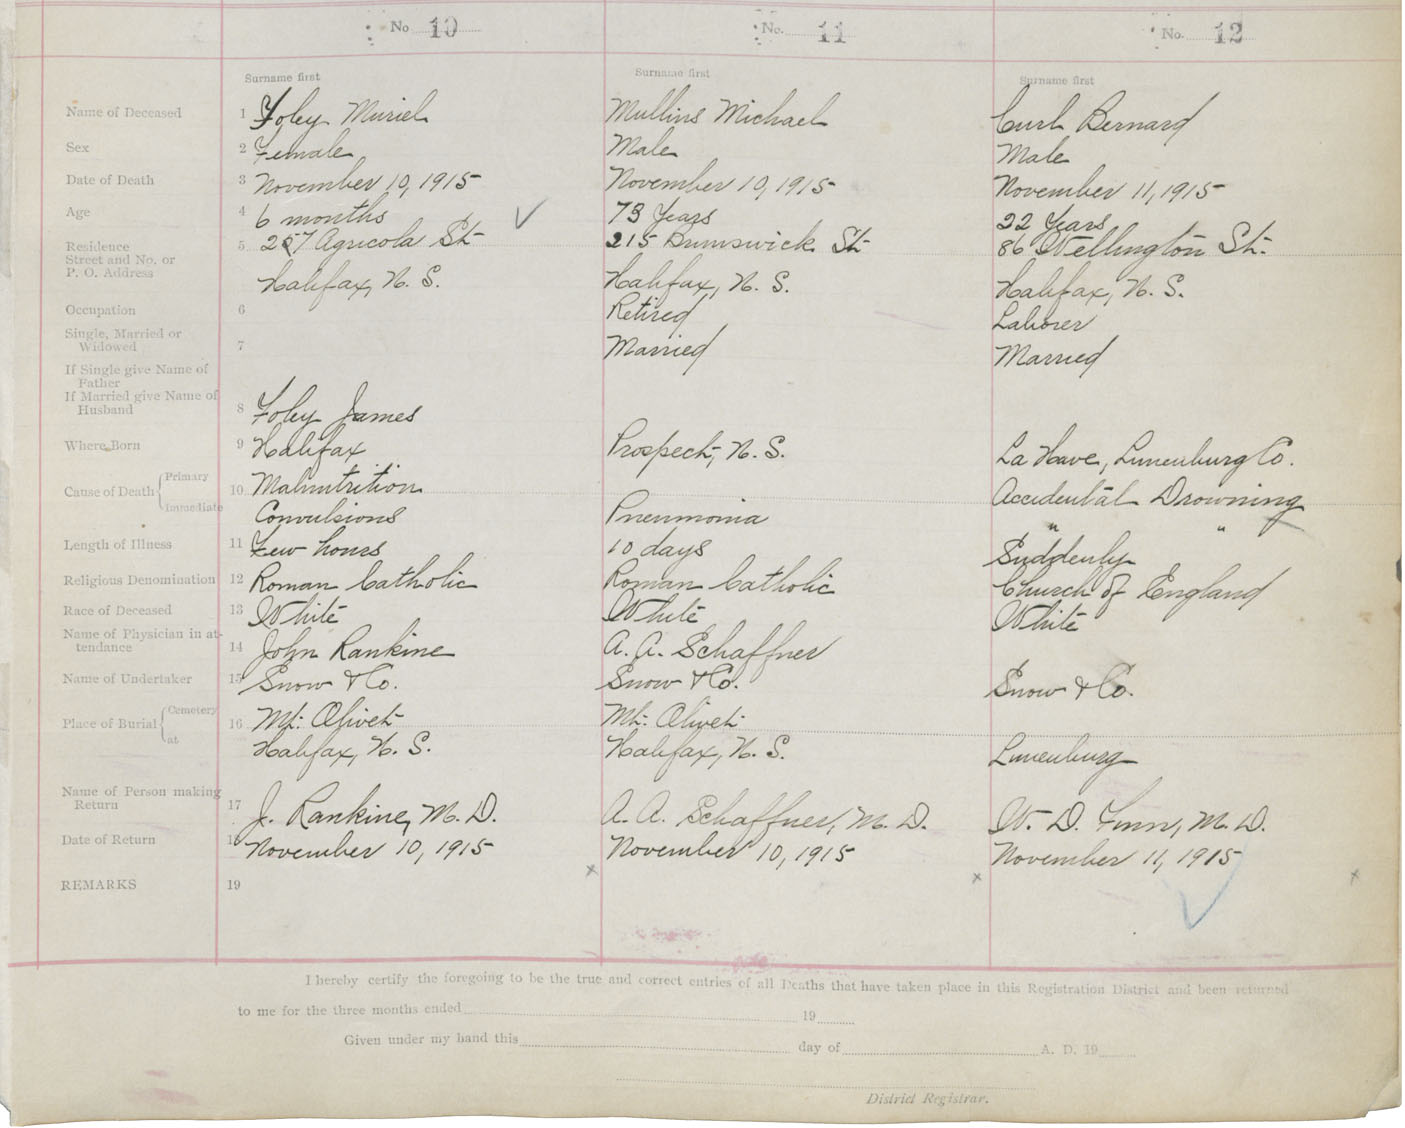 No 10 No. 11 No. 12
Surname first Surname first Surname first
Name of Deceased 1 Foley Muriel Mullins Michael Curl Bernard
Sex 2 Female Male Male
Date of Death 3 November 10, 1915 November 10, 1915 November 11, 1915
Age 4 6 months 73 Years 22 Years
Residence
Street and No. or 5 257 Agricola St. 215 Brunswick St. 86 Wellington St.
P. O. Address Halifax, N. S. Halifax, N. S. Halifax, N. S.
Occupation 6 Retired Laborer
Single, Married or
Widowed 7 Married Married
If Single give Name of
Father
If Married give Name of
Husband 8 Foley James
Where Born 9 Halifax Prospect, N. S. La Have, Lunenburg Co.
Primary
Cause of Death 10 Malnutrition Accidental Drowning
Immediate Convulsions Pneumonia " "
Length of Illness 11 Few hours 10 days Suddenly
Religious Denomination 12 Roman Catholic Roman Catholic Church of England
Race of Deceased 13 White White White
Name of Physician in at-
tendance 14 John Rankine A. A. Schaffner
Name of Undertaker 15 Snow & Co. Snow & Co. Snow & Co.
Cemetery
Place of Burial 16 Mt. Olivet Mt. Olivet
at Halifax, N. S. Halifax, N. S. Lunenburg
Name of Person making
Return 17 J. Rankine, M. D. A. A. Schaffner, M. D. W. D. Finn, M. D.
Date of Return 18 November 10, 1915 November 10, 1915 November 11, 1915
REMARKS 19
I hereby certify the foregoing to be the true and correct entries of all Deaths that have taken place in this Registration District and been returned
to me for the three months ended 19
Given under my hand this day of A. D. 19
District Registrar.